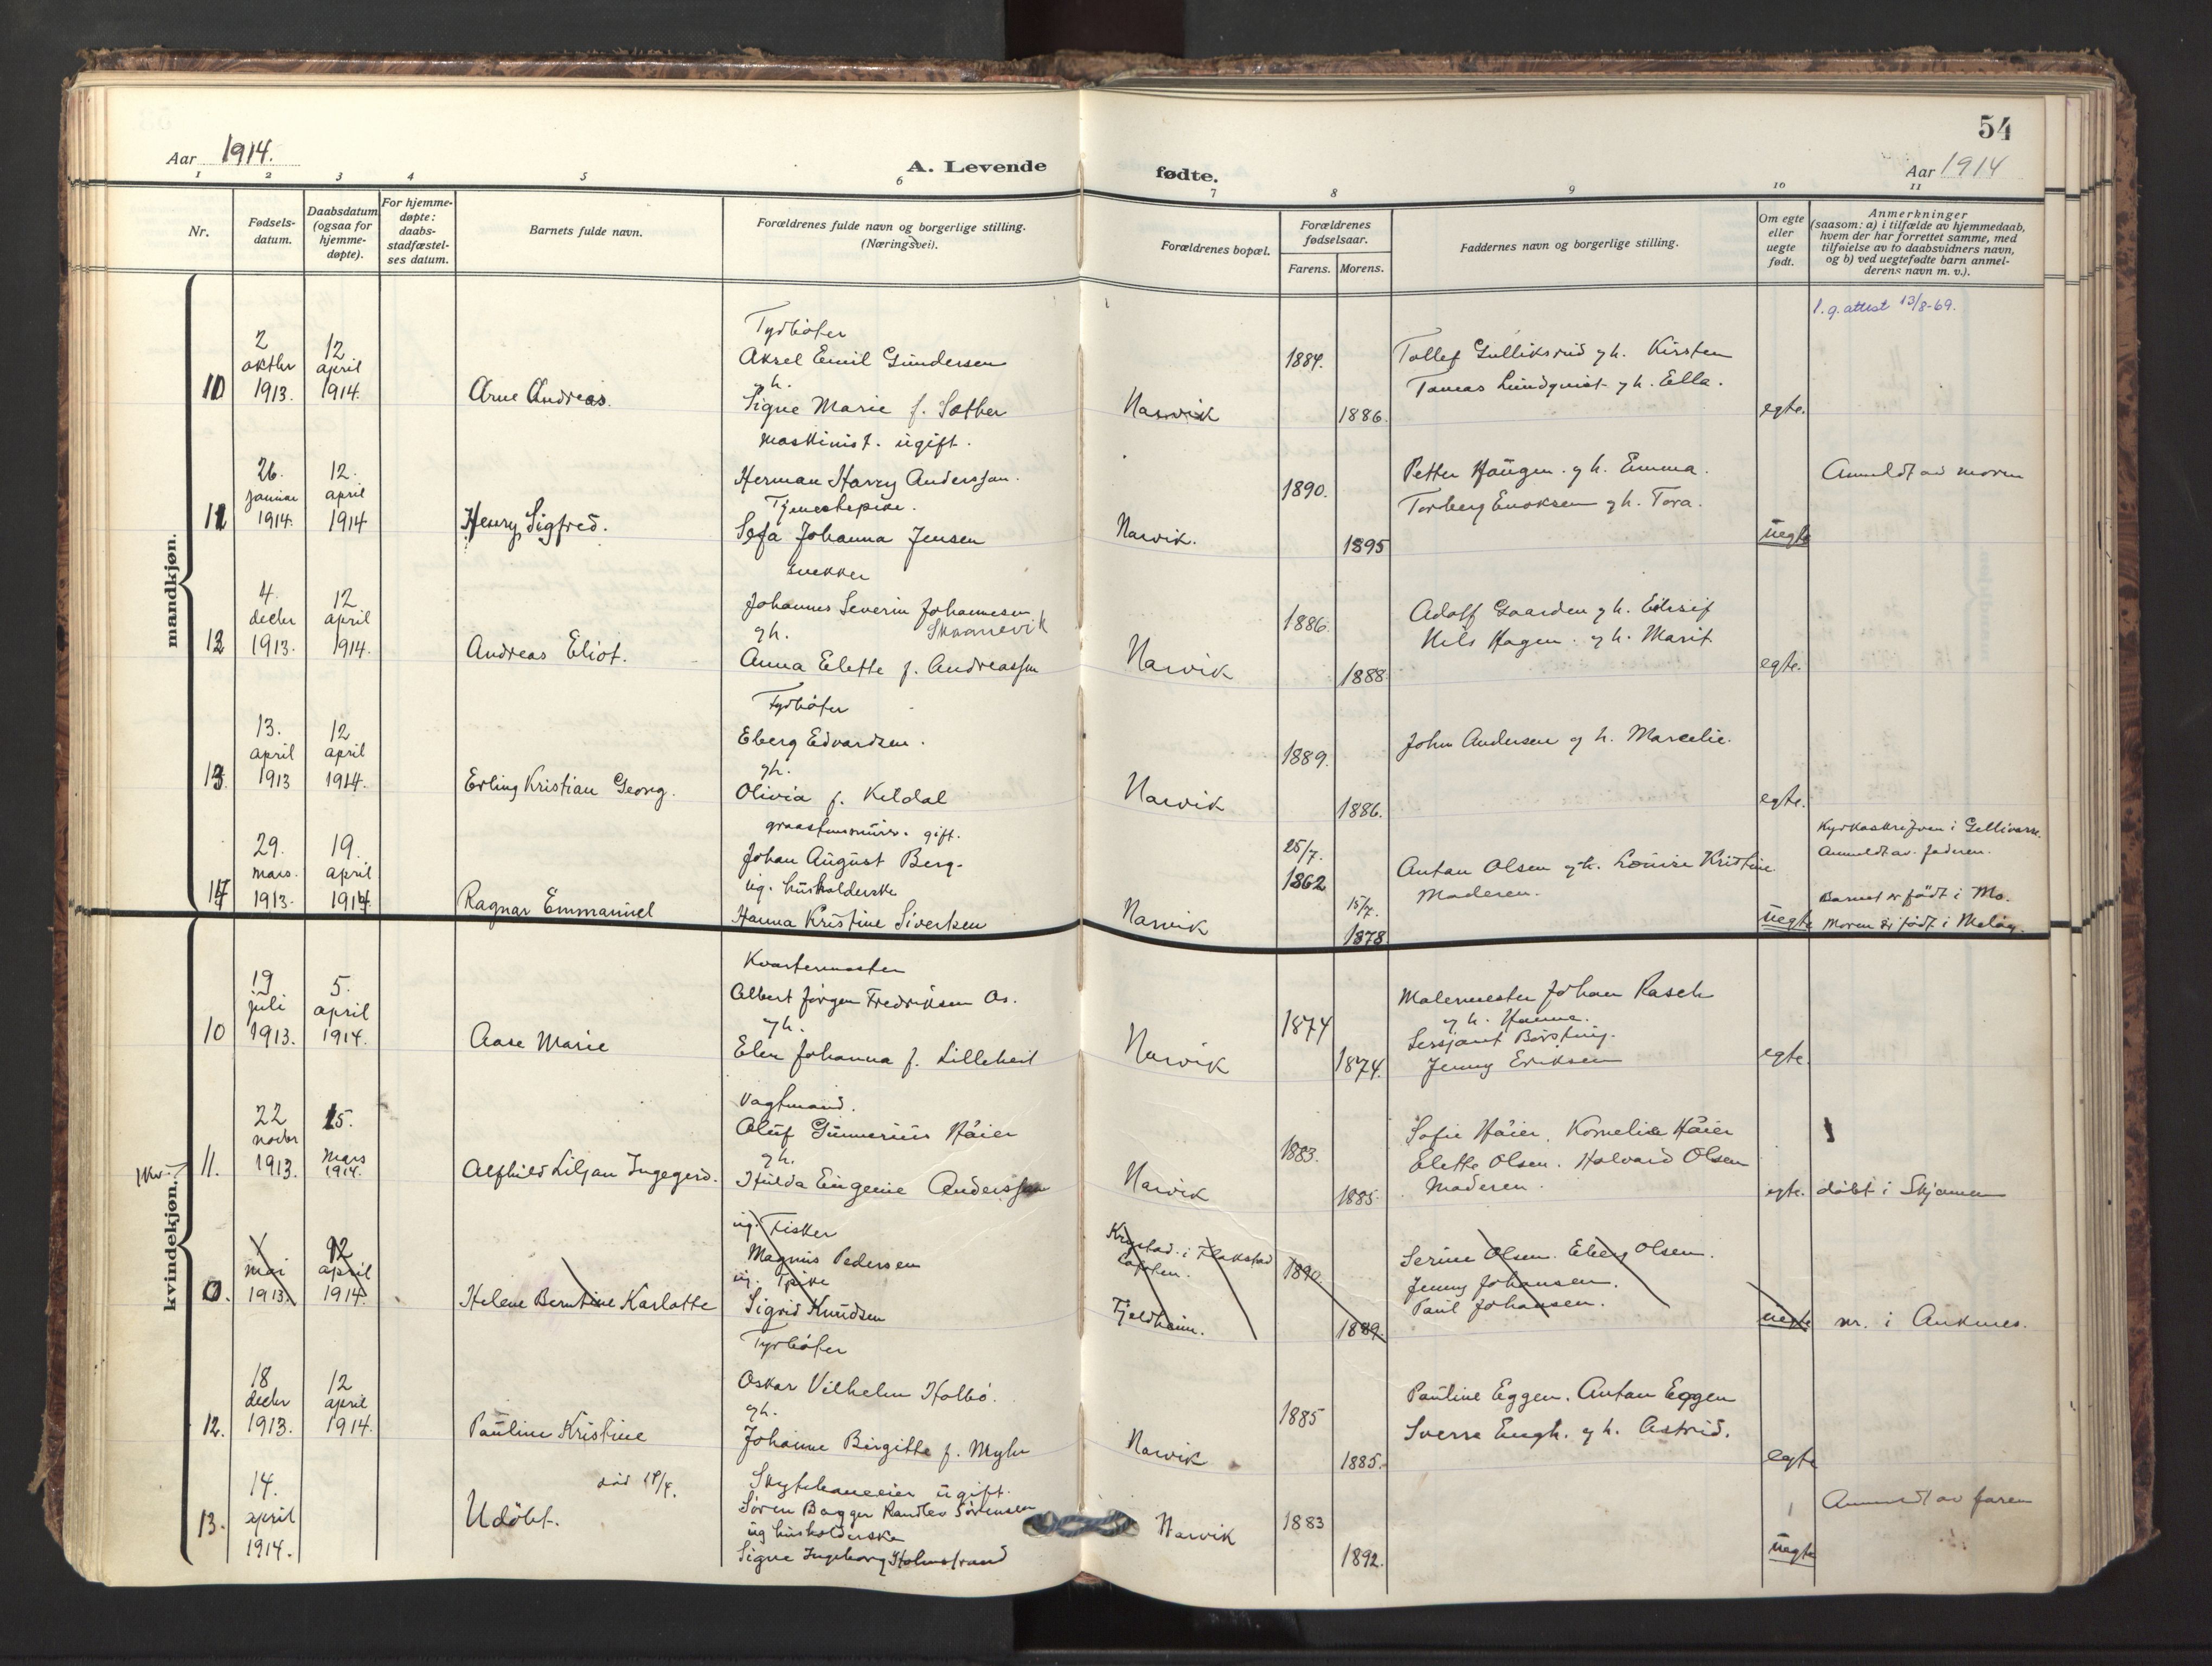 54
Aar 1914.
A. Levende
fødte.
Aar 1914
1 2 3 4 5 6 7 8 9 10 11
Nr.
Fødsels-
datum.
Daabsdatum
(ogsaa for
hjemme-
døpte).
For hjemme-
døpte:
daabs-
stadfæstel-
ses datum.
Barnets fulde navn.
Forældrenes fulde navn og borgerlige stilling.
(Næringsvei).
Forældrenes bopæl.
Forældrenes
fødselsaar.
Farens. Morens.
Faddernes navn og borgerlige stilling.
Om egte
eller
uegte
født.
Anmerkninger
(saasom: a) i tilfælde av hjemmedaab,
hvem der har forrettet samme, med
tilføielse av to daabsvidners navn,
og b) ved uegtefødte barn anmel-
derens navn m. v.).
mandkjøn.
l. g. attest 13/8-69.
10
2
oktbr
1913.
12
april
1914.
Arne Andreas.
Aksel Emil Gundersen
gh.
Signe Marie f. Sæther
Narvik
1884.
1886.
Tollef Gulliksrud gh. Kirsten
Tomas Lundquist gh. Ella.
egte.
11
26.
januar
1914.
12.
april
1914
Henry Sigfred.
maskinist. ugift.
Herman Harry Anderssan.
Tjenestepike.
Sefa Johanna Jensen
Narvik.
1890.
1895
Petter Haugen. gh. Emma.
Torberg Enoksen gh. Tora.
uegte
Anmeldt av moren
12
4.
decbr
1913.
12
april
1914.
Andreas Eliot.
snekker
Johannes Severin Johannesen
gh. Skaanevik
Anna Elette f. Andreassen
Narvik
1886.
1888
Adolf Gaarden gh. Edisif
Nils Hagen. gh. Marit
egte.
13.
13.
april
1913
12
april
1914.
Erling Kristian Georg.
Eberg Edvardsen.
gh.
Olivia f. Kildal
Narvik
1889.
1886.
John Andersen gh. Marcelie.
egte.
14
29.
mars.
1913.
19.
april
1914
Ragnar Emmanuel
gift.
Johan August Berg.
ug. husholderske
Hanna Kristine Sivertsen
Narvik
25/7.
1862
15/7.
1878
Antan Olsen gh. Louise Kristine
Moderen.
uegte
Kyrkoskrifven i Gellivare.
Anmeldt av faderen.
Barnet er født i Mo.
Moren er født i Meløy.
kvindekjøn.
10
19
juli
1913.
5.
april
1914.
Aase Marie
Kvartermester
Albert Jörgen Fredriksen Os.
gh.
Elen Johanna f. Lilleheil
Narvik
1874
1874.
Malermester Johan Rasch
gh. Hanna.
Sersjant Börsting.
Jenny Eriksen
egte.
1 kv.
11.
22
novbr
1913.
15.
Mars
1914.
Alfhild Liljan Ingegerd.
Vagtmand.
Oluf Gunnerius Håier
gh.
Hulda Eugenie Anderssan
Narvik
1883.
1885.
Sofie Håier. Kornelie Håier
Elette Olsen. Halvard Olsen
Moderen.
egte.
döbt i Skjomen
0.
mai
1913.
12
april
1914
Helene Berntine Karlotte
ug. Fisker
Magnus Pedersen
ug. Pike
Sigrid Knudsen
Krystad. i Flakstad
Lofoten.
Fjeldheim.
1890.
1889.
Serine Olsen. Eberg Olsen.
Jenny Johansen.
Paul Johansen.
uegte
nr. i Ankenes.
12.
18
decbr
1913.
12
april
1914
Pauline Kristine
Oskar Vilhelm Holbö.
gh.
Johanne Birgitte f. Myhr
Narvik
1885
1885.
Pauline Eggen. Antan Eggen
Sverre Engh. gh. Astrid.
egte
13.
14.
april
1914.
Udöbt.
ugift.
Sören Bagger Randlev Sörensen
ug husholderske
Signe Ingeborg Holmstrand
Narvik
1883
1892.
uegte
Anmeldt av faren